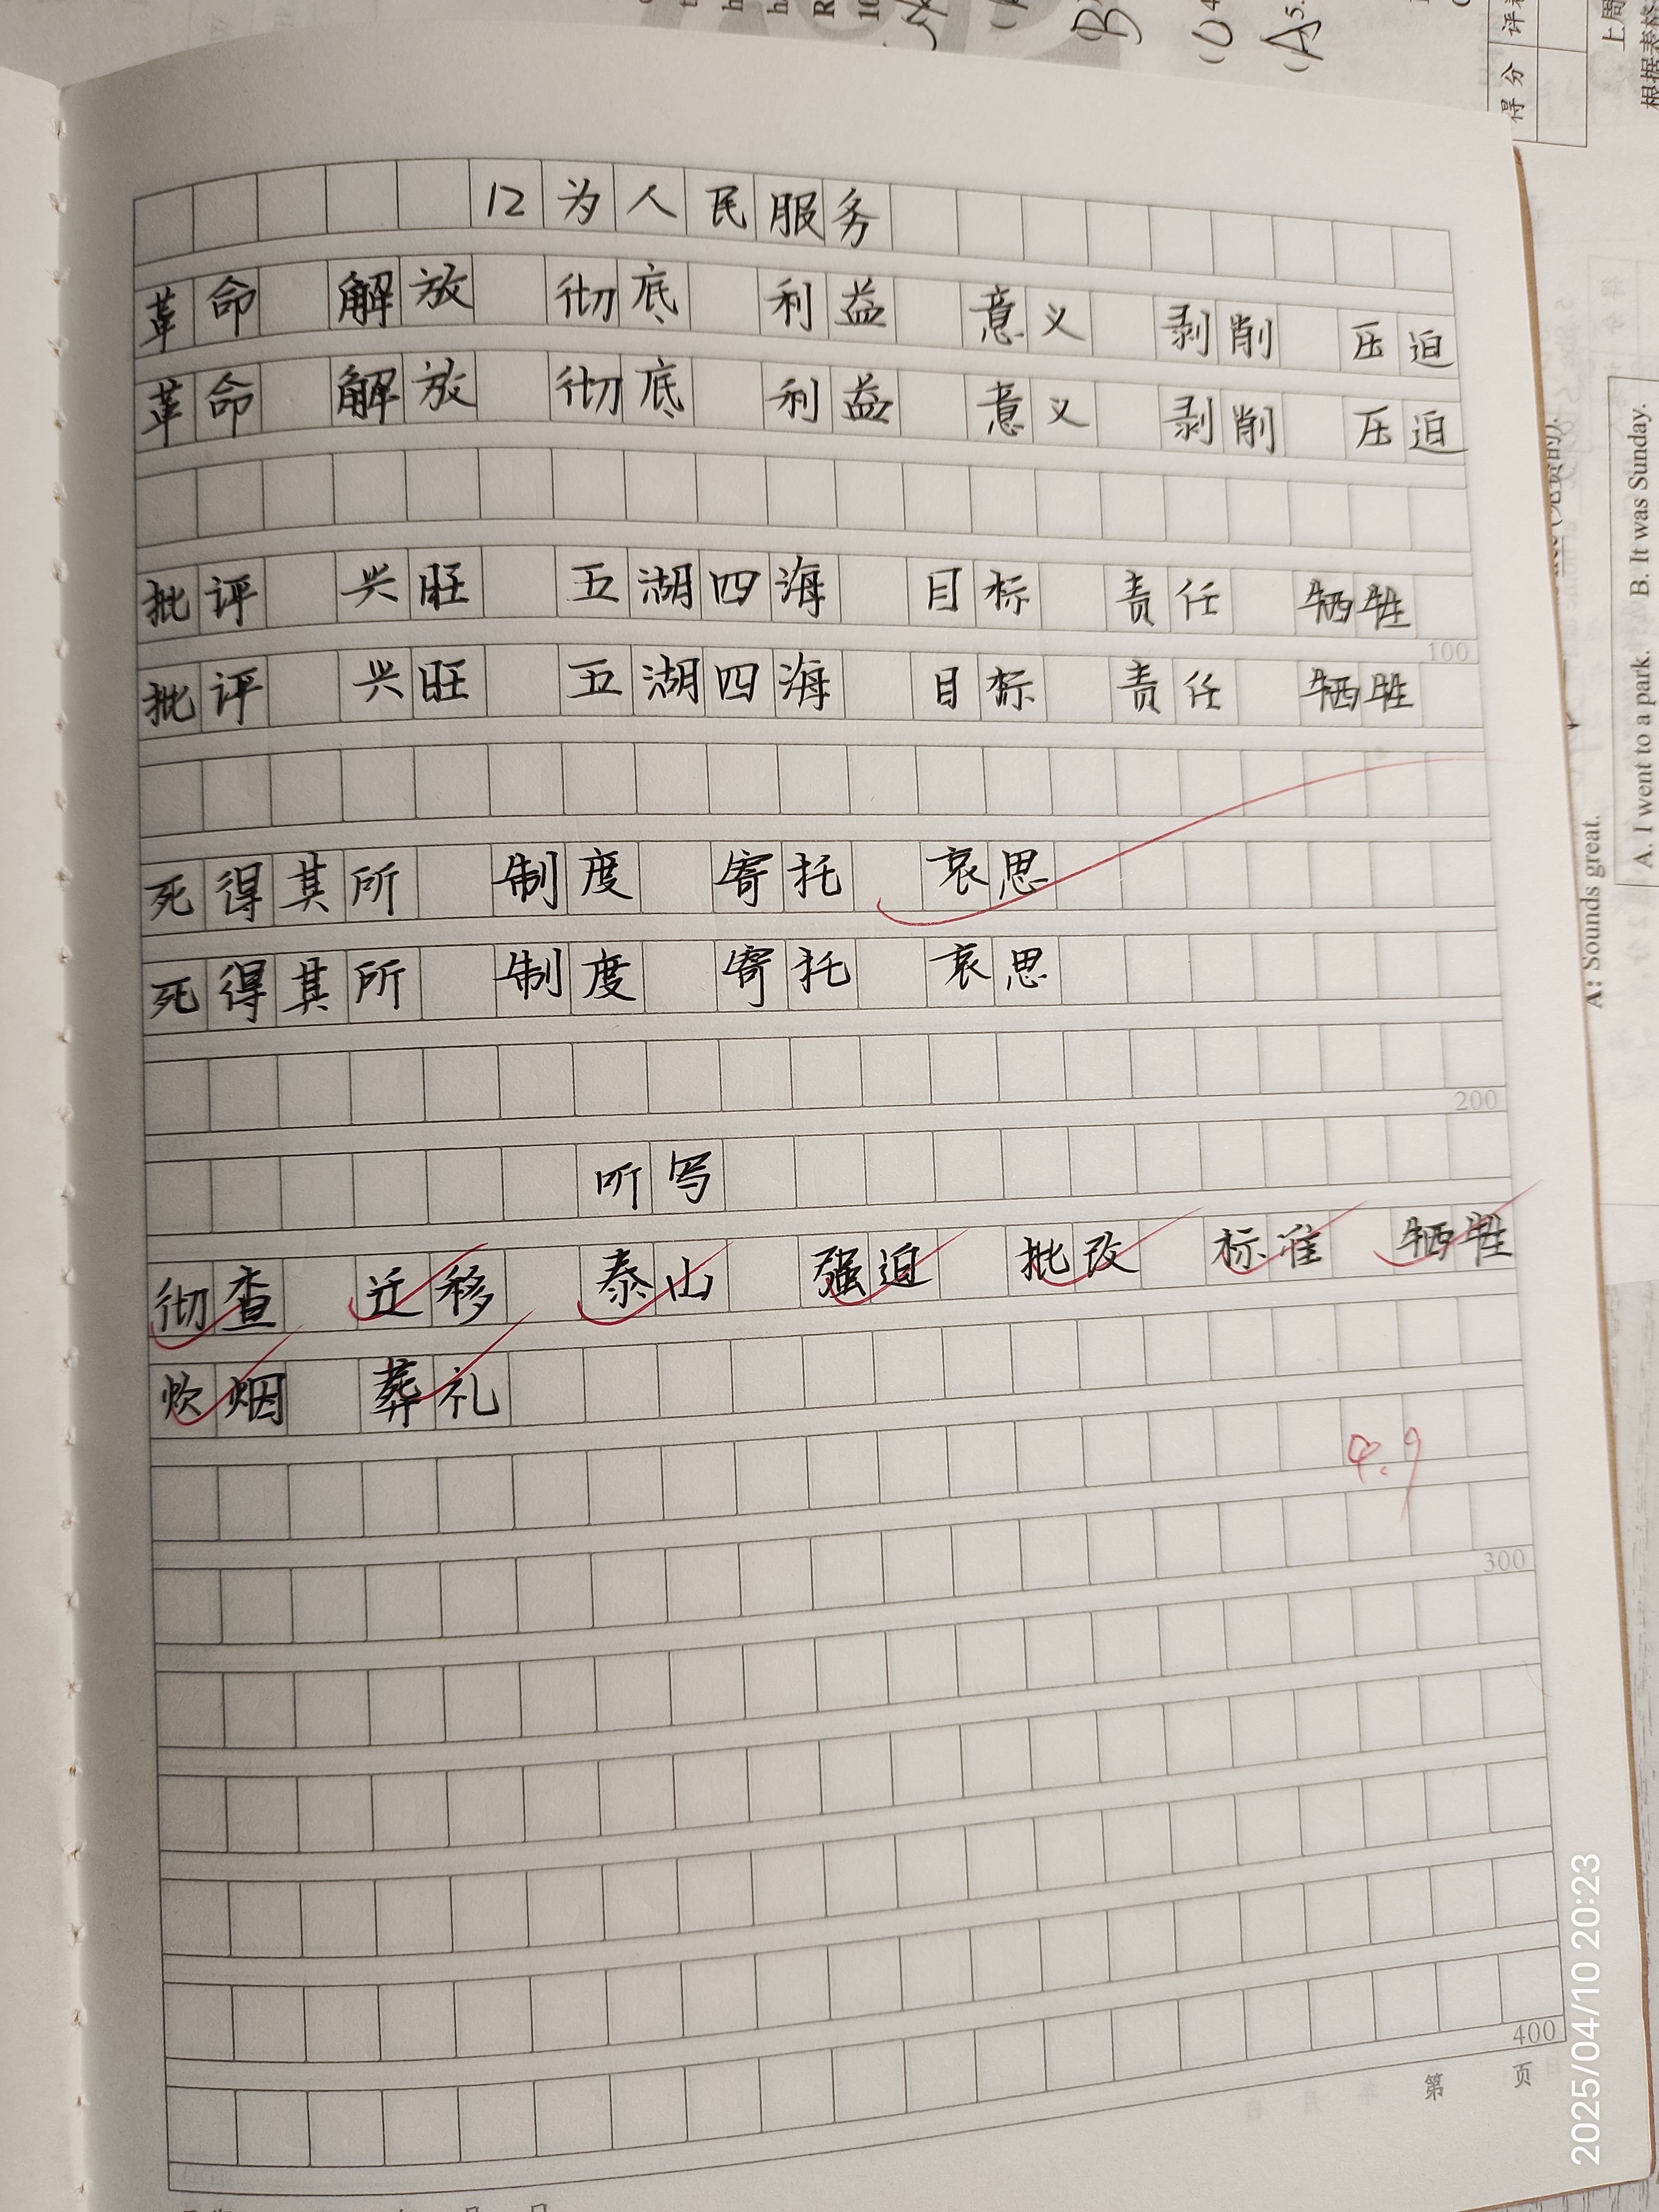 12为人民服务
革命 解放 彻底 利益 意义 剥削 压迫
革命 解放 彻底 利益 意义 剥削 压迫
批评 兴旺 五湖四海 目标 责任 牺牲
100
批评 兴旺 五湖四海 目标 责任 牺牲
死得其所 制度 寄托 哀思
死得其所 制度 寄托 哀思
200
听写
彻查 迁移 泰山 强迫 批改 标准 牺牲
炊烟 葬礼
4.9
300
400
第 页
得分 评卷
上周
根据表格
A. I went to a park. B. It was Sunday.
A: Sounds great.
2025/04/10 20:23